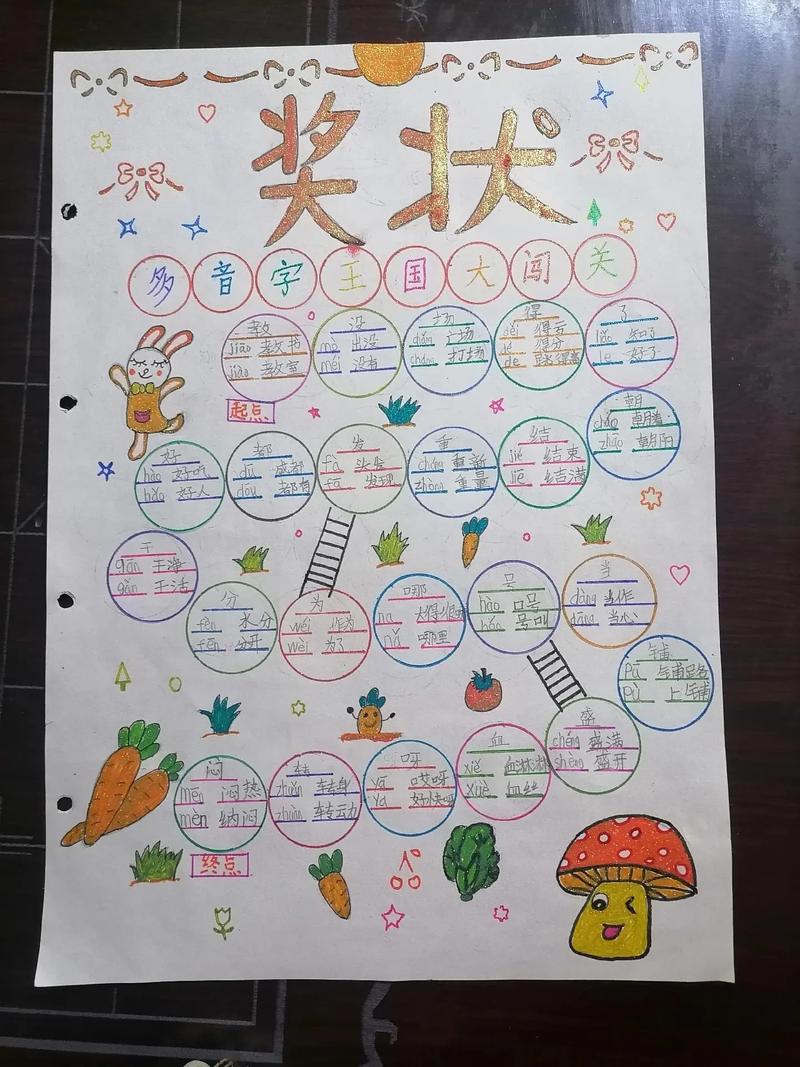 奖状
多音字王国大闯关
教
jiāo 教书
jiào 教室
没
mò 出没
méi 没有
场
cháng 广场
chǎng 打场
得
děi 得亏
dé 得分
de
了
liǎo 知了
le 好了
起点
朝
cháo
zhāo 朝阳
好
hào 好听
hǎo 好人
都
dū 成都
dōu 都有
发
fà 头发
fā 发现
重
chóng 重新
zhòng 重量
结
jié 结束
jiē 结满
干
gān 干净
gàn 干活
分
fèn 水分
fēn 分开
为
wéi 作为
wèi 为了
哪
na
nǎ 哪里
号
hào 口号
háo 号叫
当
dàng 当作
dāng 当心
铺
pū
pù 上铺
盛
chéng 盛满
shèng 盛开
闷
mēn 闷热
mèn 纳闷
转
zhuǎn 转身
zhuàn 转动
呀
yā 哎呀
ya 好快呀
血
xiě 血淋淋
xuè 血丝
终点